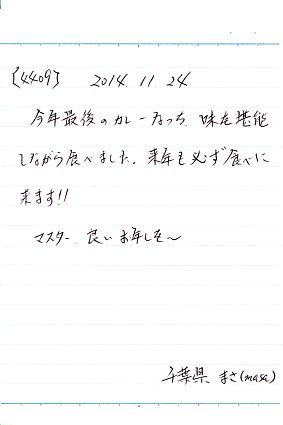 {4409} 2014. 11. 24
今年最後のカレーなっち、味を堪能
しながら食べました。来年も必ず食べに
来ます!!
マスター 良いお年しを〜
千葉県 まさ(masa)